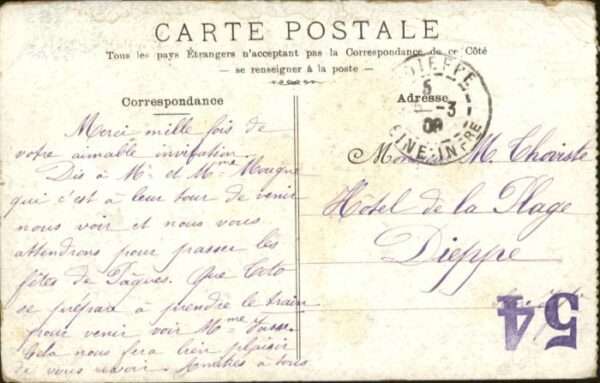 CARTE POSTALE
Tous les pays Étrangers n'acceptant pas la Correspondance de ce Côté
— se renseigner à la poste —
Correspondance
Merci mille fois de
votre aimable invitation.
Dis à Mr et Mme
qui c'est à leur tour de venir
nous voir et nous vous
attendrons pour passer les
fêtes de Pâques. Que Toto
se prépare à prendre le train
pour venir voir Mme
Cela nous fera bien plaisir
de vous revoir. Amitiés à tous
Adresse
DIEPPE
5
-3
09
SEINE-INFRE
M. Choviste
Hôtel de la Plage
Dieppe
54